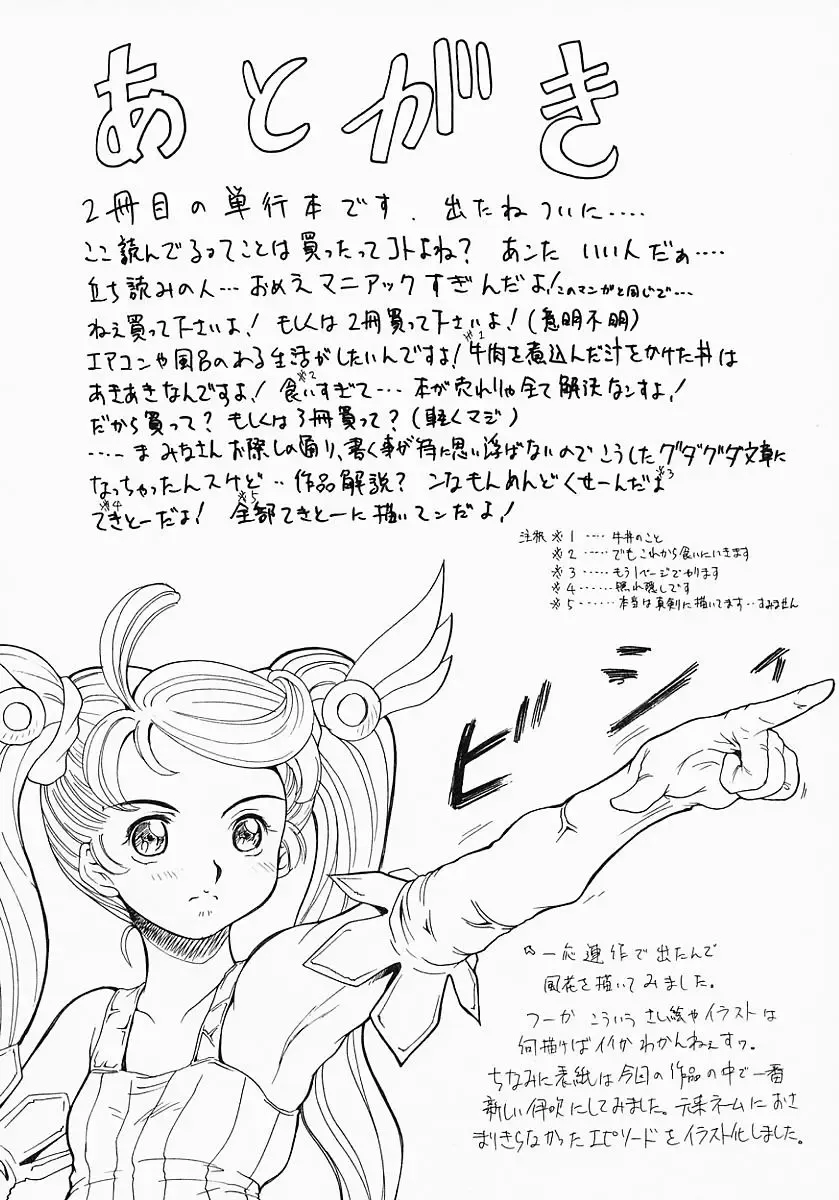 あとがき
2冊目の単行本です. 出たねついに‥‥
ここ読んでるってことは買ったってコトよね? あんた いい人だぁ‥‥
立ち読みの人… おめえマニアックすぎんだよ!このマンガと同じで…
ねぇ買って下さいよ! もしくは2冊買って下さいよ!(意明不明)
エアコンや風呂のある生活がしたいんですよ!※1牛肉を煮込んだ汁をかけた丼は
あきあきなんですよ! 食いすぎて※2…. 本が売れりゃ全て解決なンすよ!
だから買って? もしくは3冊買って?(軽くマジ)
‥‥ま みなさんお察しの通り、書く事が特に思い浮ばないのでこうしたグダグダ文章に
なっちゃったんスけど‥ 作品解説? ンなもんめんどくせーんだよ※3
※4てきとーだよ! ※5全部てきとーに描いてンだよ!
注釈 ※1 ‥‥ 牛丼のこと
※2 ‥‥‥ でもこれから食いにいきます
※3 ‥‥‥ もう1ページでやります
※4 ‥‥‥ 照れ隠しです
※5 ‥‥‥ 本当は真剣に描いてます‥すみません
ビシィ
一応連作で出たんで
風花を描いてみました。
つーか こういう さし絵やイラストは
何描けばイイかわかんねぇすヮ。
ちなみに表紙は今回の作品の中で一番
新しい伊吹にしてみました。元来ネームにおさ
まりきらなかったエピソードをイラスト化しました。